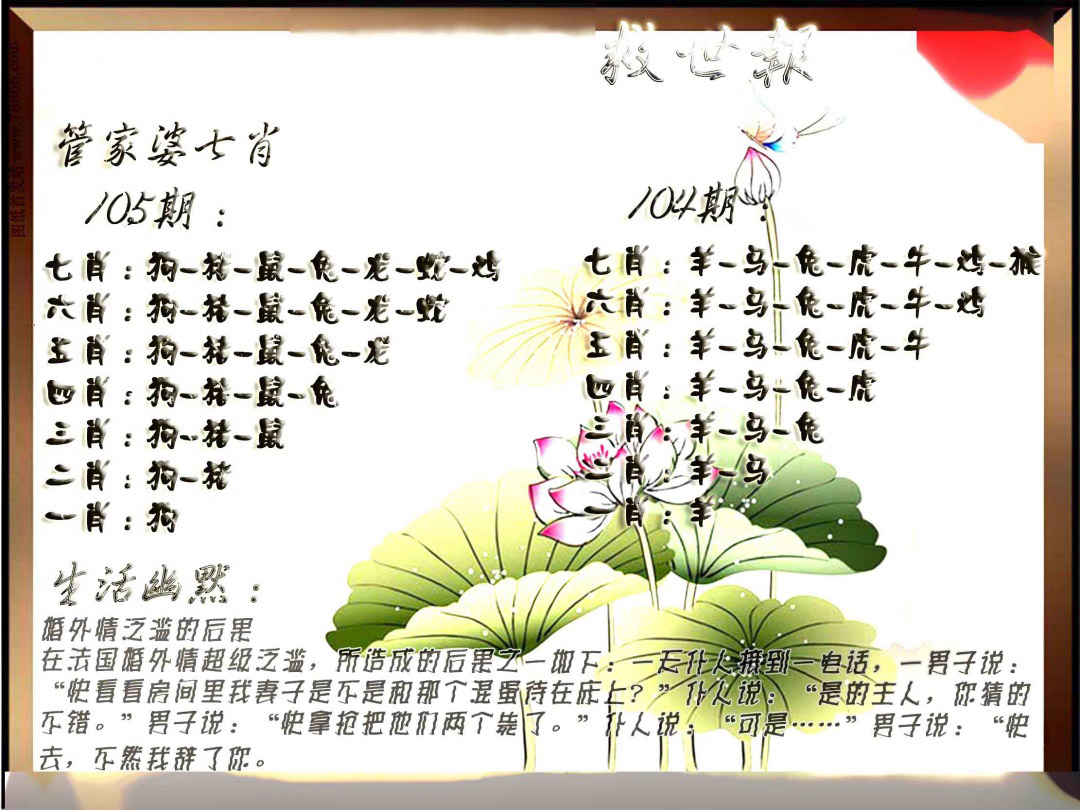 救世報
管家婆七肖
105期：
七肖：狗-猪-鼠-兔-龙-蛇-鸡
六肖：狗-猪-鼠-兔-龙-蛇
五肖：狗-猪-鼠-兔-龙
四肖：狗-猪-鼠-兔
三肖：狗-猪-鼠
二肖：狗-猪
一肖：狗
104期：
七肖：羊-马-兔-虎-牛-鸡-猴
六肖：羊-马-兔-虎-牛-鸡
五肖：羊-马-兔-虎-牛
四肖：羊-马-兔-虎
三肖：羊-马-兔
二肖：羊-马
一肖：羊
生活幽默：
婚外情泛滥的后果
在法国婚外情超级泛滥，所造成的后果之一如下：一天仆人接到一电话，一男子说：
“快看看房间里我妻子是不是和那个混蛋待在床上？”仆人说：“是的主人，你猜的
不错。”男子说：“快拿枪把他们两个毙了。”仆人说：“可是……”男子说：“快
去，不然我辞了你。